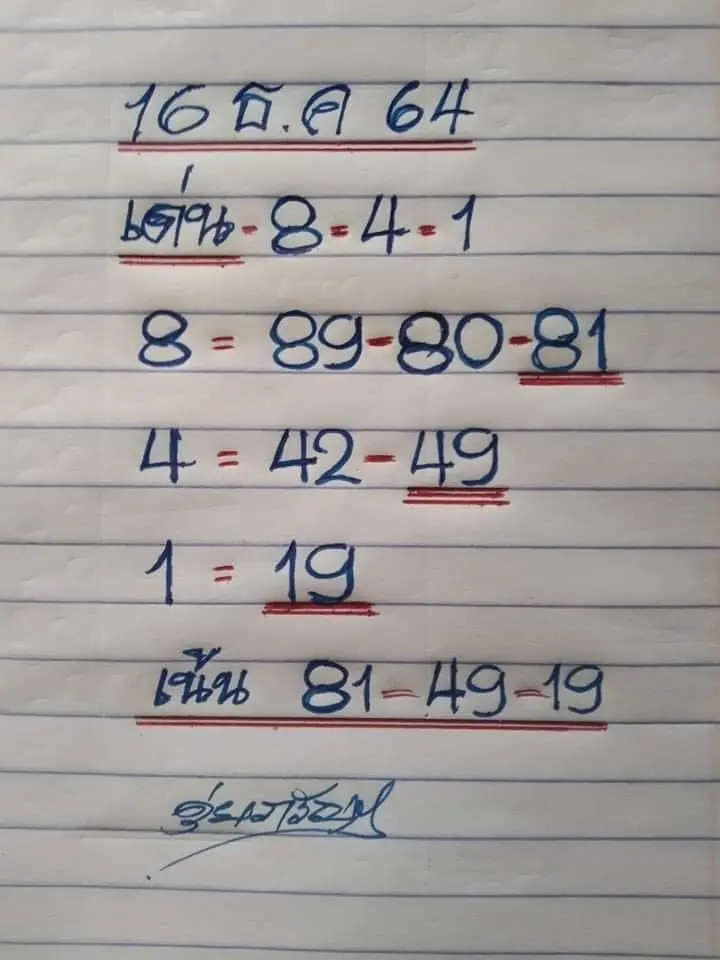 16 ธ.ค 64
เด่น - 8 = 4 - 1
8 = 89 - 80 - 81
4 = 42 - 49
1 = 19
เน้น 81 - 49 - 19